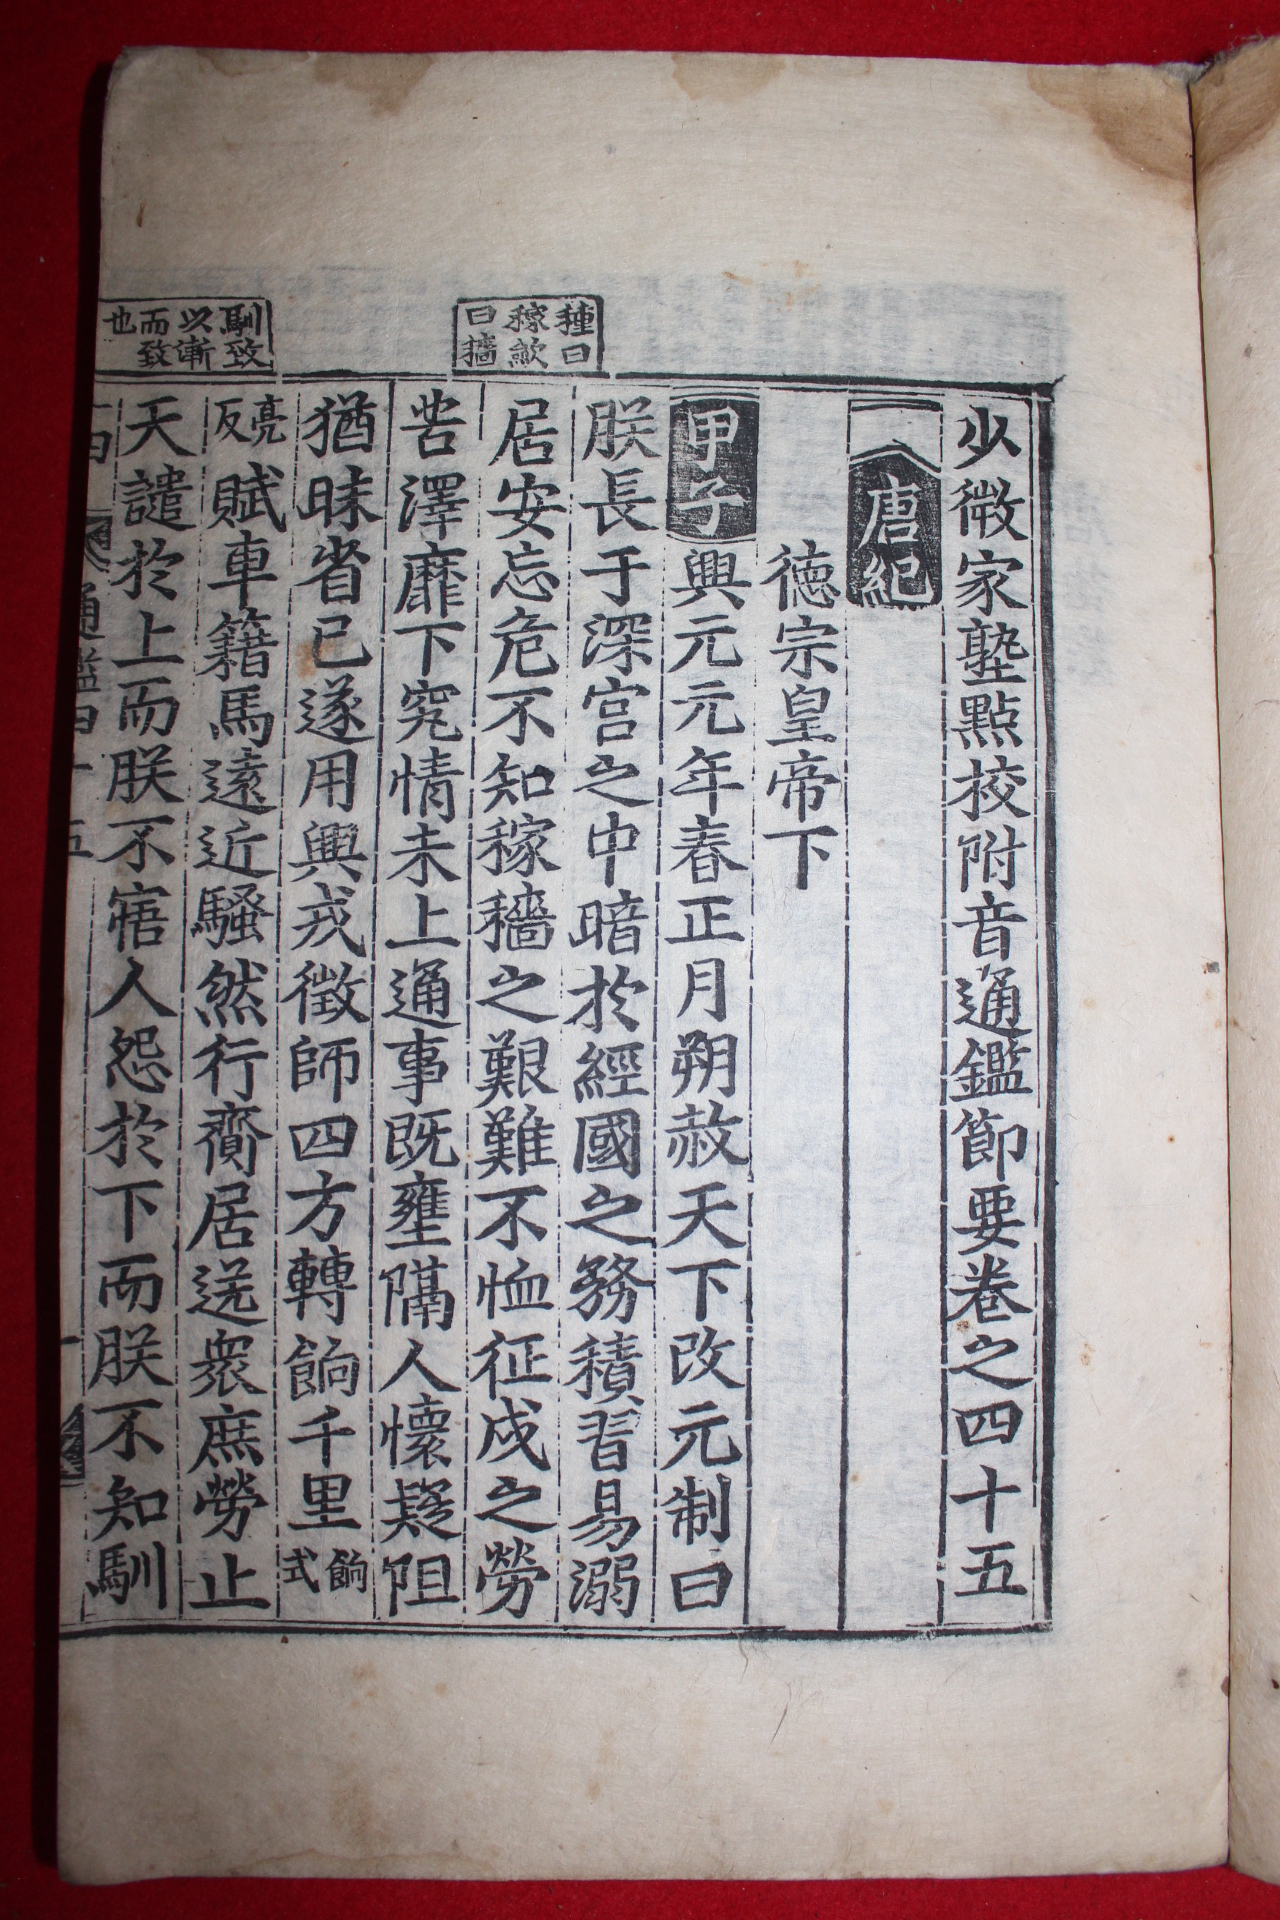 少微家塾點校附音通鑑節要卷之四十五
唐紀
德宗皇帝下
甲子興元元年春正月朔赦天下改元制曰
朕長于深宮之中暗於經國之務積習易溺
居安忘危不知稼穡之艱難不恤征戍之勞
苦澤靡下究情未上通事既壅隔人懷疑阻
猶昧省已遂用興戎徵師四方轉餉千里餉式
亮反賦車籍馬遠近騷然行齎居送衆庶勞止
天譴於上而朕不寤人怨於下而朕不知馴
種曰
稼歛
曰穡
馴致
以漸
而致
也
通鑑四十五
一